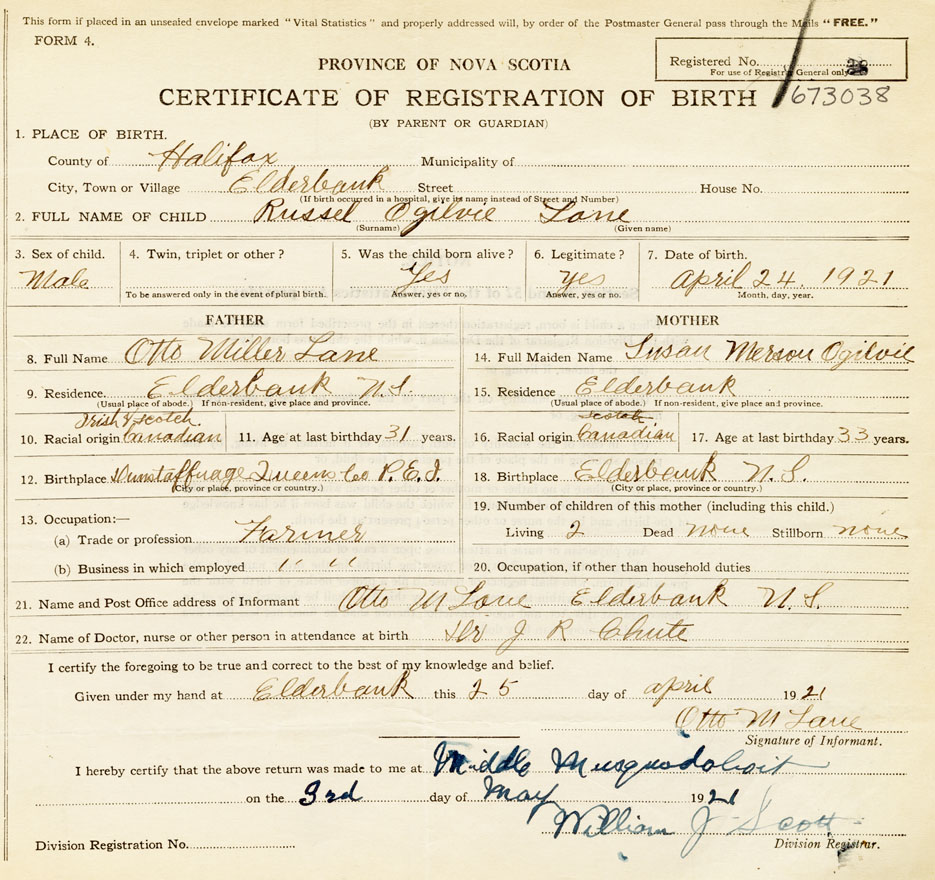 This form if placed in an unsealed envelope marked "Vital Statistics" and properly addressed will, by order of the Postmaster General pass through the Mails "FREE."
FORM 4.
Registered No.
For use of Registrar General only
PROVINCE OF NOVA SCOTIA
CERTIFICATE OF REGISTRATION OF BIRTH 673038
(BY PARENT OR GUARDIAN)
1. PLACE OF BIRTH.
County of Halifax Municipality of
City, Town or Village Elderbank Street House No.
(If birth occurred in a hospital, give its name instead of Street and Number)
2. FULL NAME OF CHILD Russel Ogilvie Lane
(Surname) (Given name)
3. Sex of child. 4. Twin, triplet or other? 5. Was the child born alive? 6. Legitimate? 7. Date of birth.
Male Yes yes April 24. 1921
To be answered only in the event of plural birth. Answer, yes or no. Answer, yes or no. Month, day, year.
FATHER
8. Full Name Otto Miller Lane
9. Residence. Elderbank N.S.
(Usual place of abode.) If non-resident, give place and province.
Irish & Scotch
10. Racial origin Canadian 11. Age at last birthday 31 years.
12. Birthplace Dunstaffnage Queens Co P.E.I.
(City or place, province or country.)
13. Occupation:—
(a) Trade or profession Farmer
(b) Business in which employed " " " "
MOTHER
14. Full Maiden Name Susan Merson Ogilvie
15. Residence Elderbank
(Usual place of abode.) If non-resident, give place and province.
Scotch
16. Racial origin Canadian 17. Age at last birthday 33 years.
18. Birthplace Elderbank N.S.
(City or place, province or country.)
19. Number of children of this mother (including this child.)
Living 2 Dead none Stillborn none
20. Occupation, if other than household duties
21. Name and Post Office address of Informant Otto M Lane Elderbank N.S.
22. Name of Doctor, nurse or other person in attendance at birth Dr J R Chute
I certify the foregoing to be true and correct to the best of my knowledge and belief.
Given under my hand at Elderbank this 25 day of april 1921
Otto M Lane
Signature of Informant.
I hereby certify that the above return was made to me at Middle Musquodoboit
on the 3rd day of May 1921
William J Scott
Division Registration No. Division Registrar.